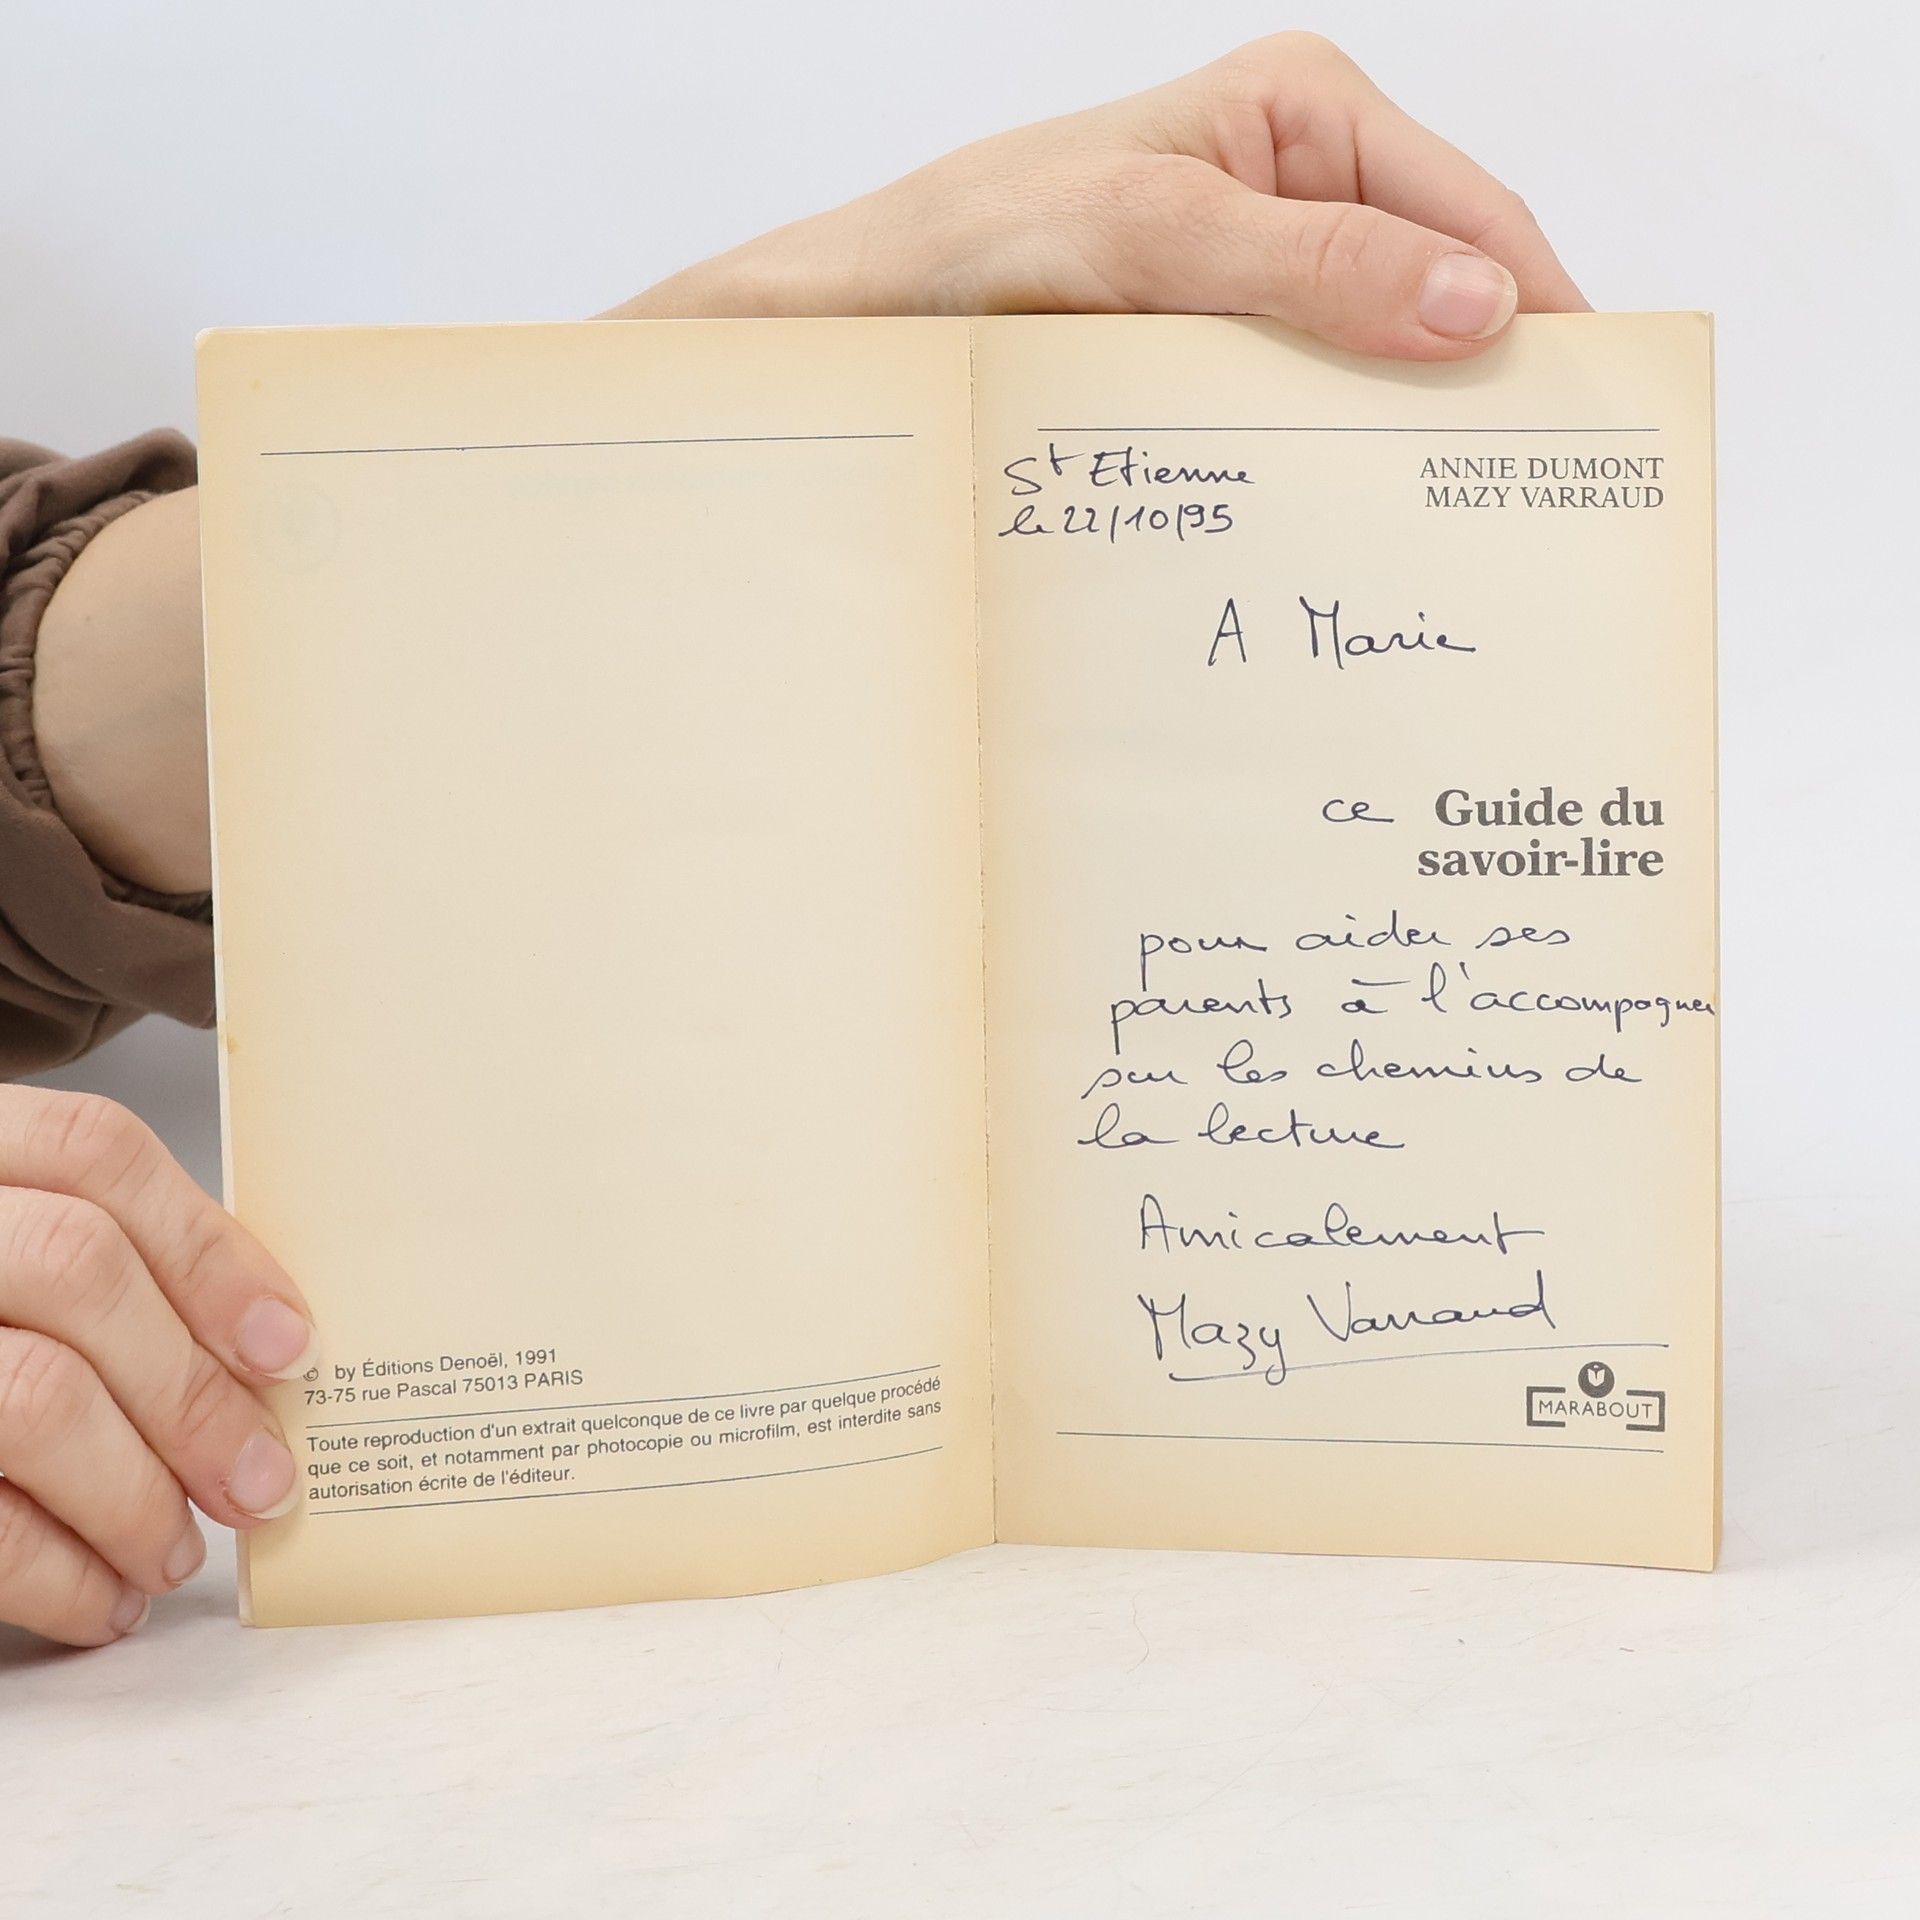 © by Éditions Denoël, 1991
73-75 rue Pascal 75013 PARIS
Toute reproduction d'un extrait quelconque de ce livre par quelque procédé
que ce soit, et notamment par photocopie ou microfilm, est interdite sans
autorisation écrite de l'éditeur.
St Etienne
le 22/10/95
ANNIE DUMONT
MAZY VARRAUD
A Marie
ce Guide du
savoir-lire
pour aider ses
parents à l'accompagner
sur les chemins de
la lecture
Amicalement
Mazy Varraud
MARABOUT